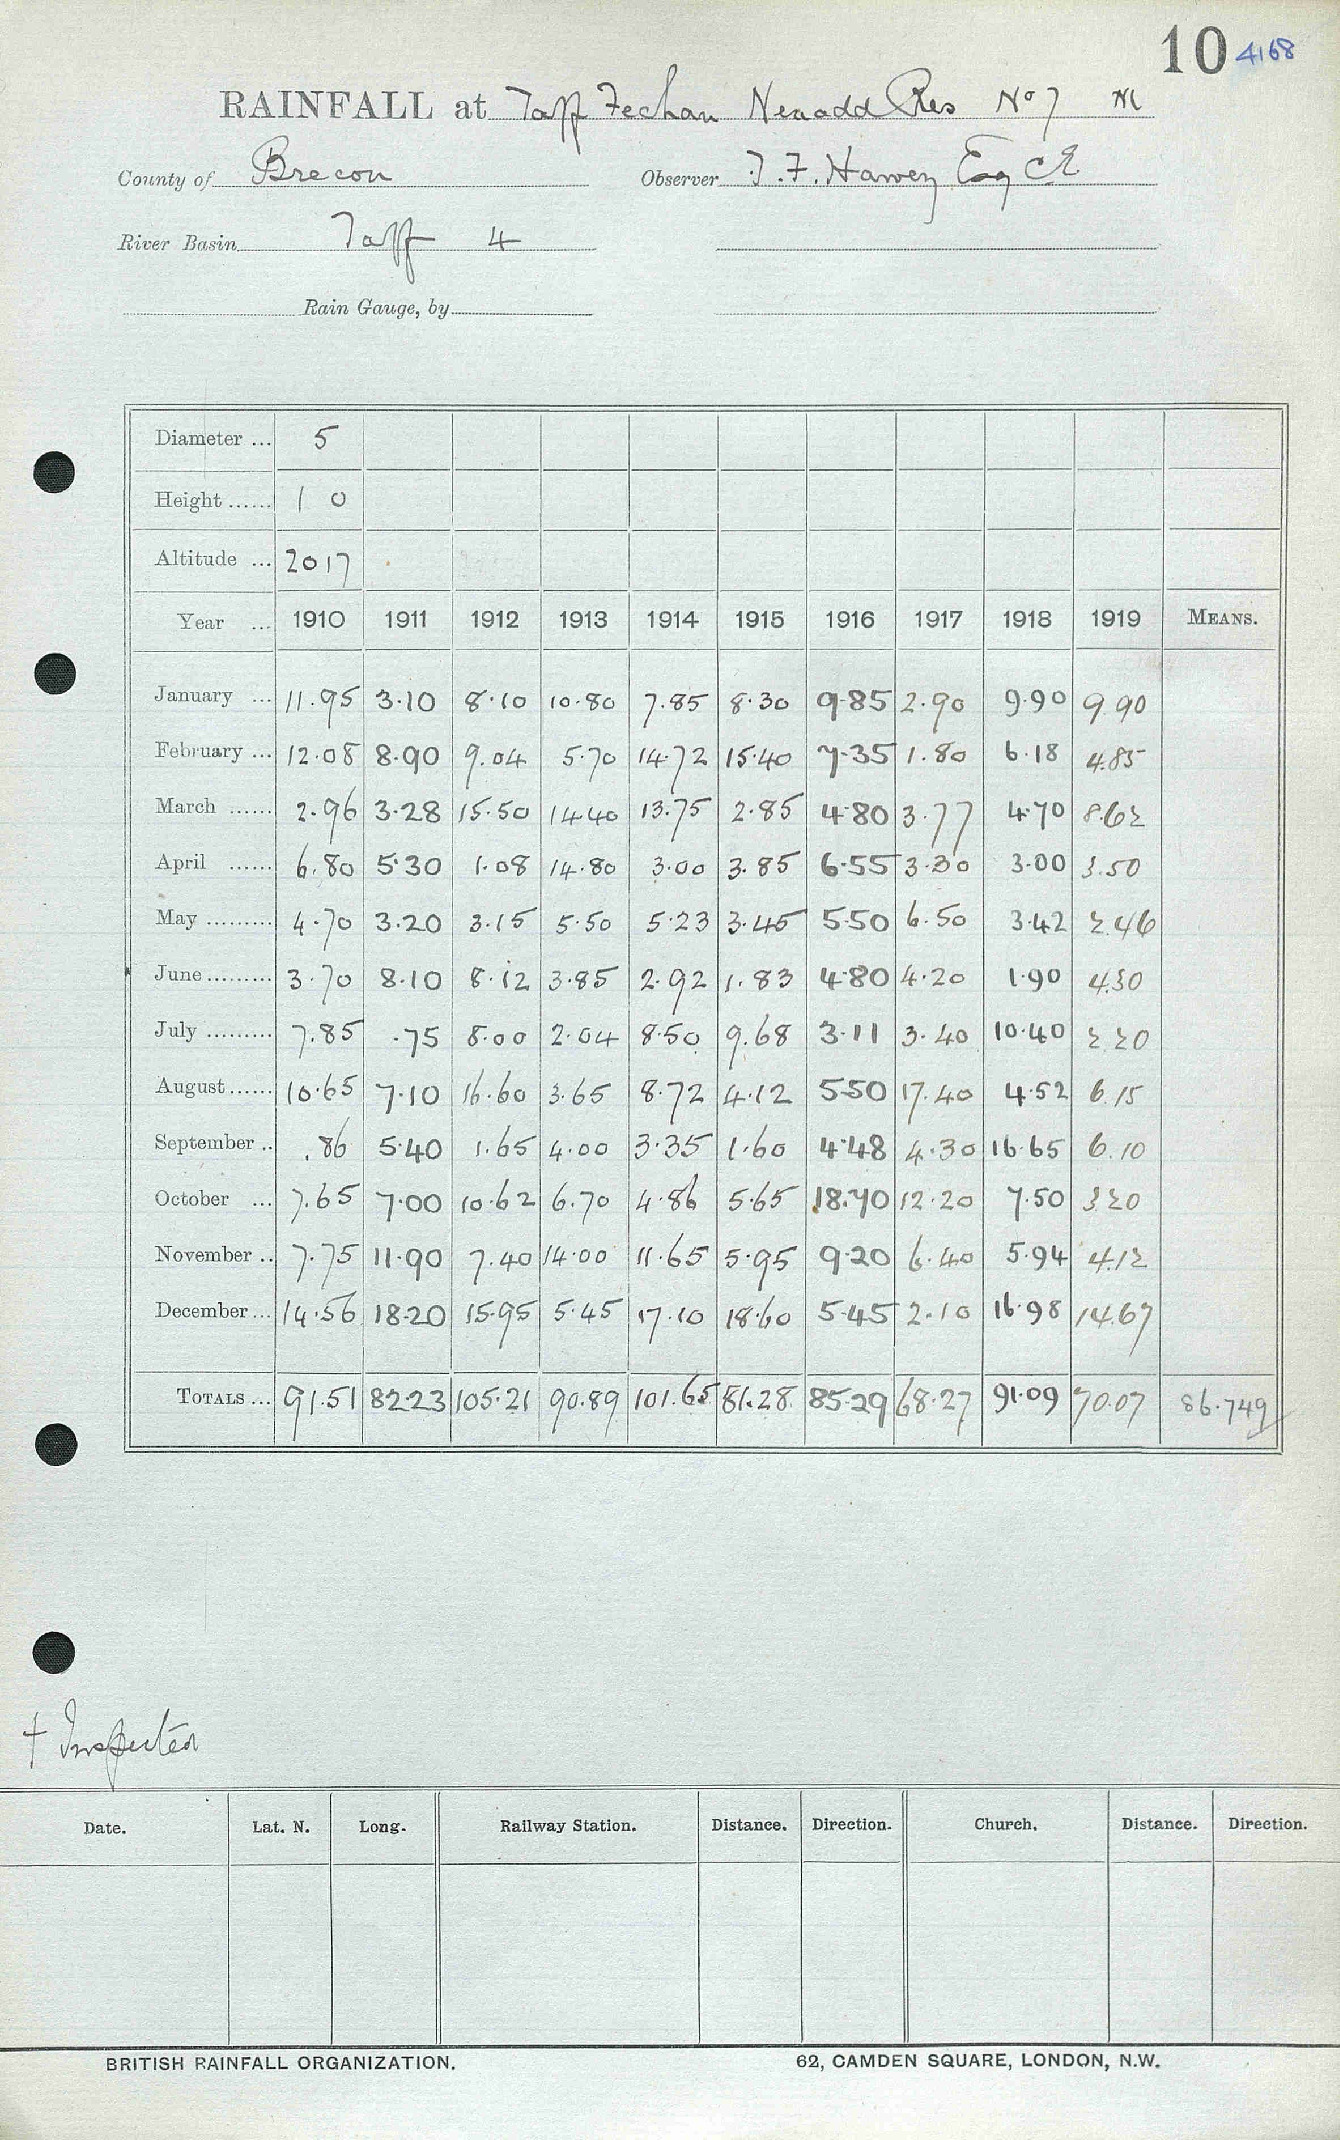 10 4168
RAINFALL at Taff Fechan Neuadd Res No 7 M
County of Brecon Observer T. F. Harvey Esq CE
River Basin Taff 4
Rain Gauge, by
Diameter ... 5
Height ...... 1 0
Altitude ... 2017
Year ... 1910 1911 1912 1913 1914 1915 1916 1917 1918 1919 MEANS.
January ... 11.95 3.10 8.10 10.80 7.85 8.30 9.85 2.90 9.90 9.90
February ... 12.08 8.90 9.04 5.70 14.72 15.40 7.35 1.80 6.18 4.85
March ...... 2.96 3.28 15.50 14.40 13.75 2.85 4.80 3.77 4.70 8.62
April ...... 6.80 5.30 1.08 14.80 3.00 3.85 6.55 3.30 3.00 3.50
May ......... 4.70 3.20 3.15 5.50 5.23 3.45 5.50 6.50 3.42 2.46
June ......... 3.70 8.10 8.12 3.85 2.92 1.83 4.80 4.20 1.90 4.30
July ......... 7.85 .75 8.00 2.04 8.50 9.68 3.11 3.40 10.40 2.20
August ...... 10.65 7.10 16.60 3.65 8.72 4.12 5.50 17.40 4.52 6.15
September .. .86 5.40 1.65 4.00 3.35 1.60 4.48 4.30 16.65 6.10
October ... 7.65 7.00 10.62 6.70 4.86 5.65 18.70 12.20 7.50 3.20
November .. 7.75 11.90 7.40 14.00 11.65 5.95 9.20 6.40 5.94 4.12
December ... 14.56 18.20 15.95 5.45 17.10 18.60 5.45 2.10 16.98 14.67
TOTALS ... 91.51 82.23 105.21 90.89 101.65 81.28 85.29 68.27 91.09 70.07 86.749
† Inspected
Date. Lat. N. Long. Railway Station. Distance. Direction. Church. Distance. Direction.
BRITISH RAINFALL ORGANIZATION. 62, CAMDEN SQUARE, LONDON, N.W.